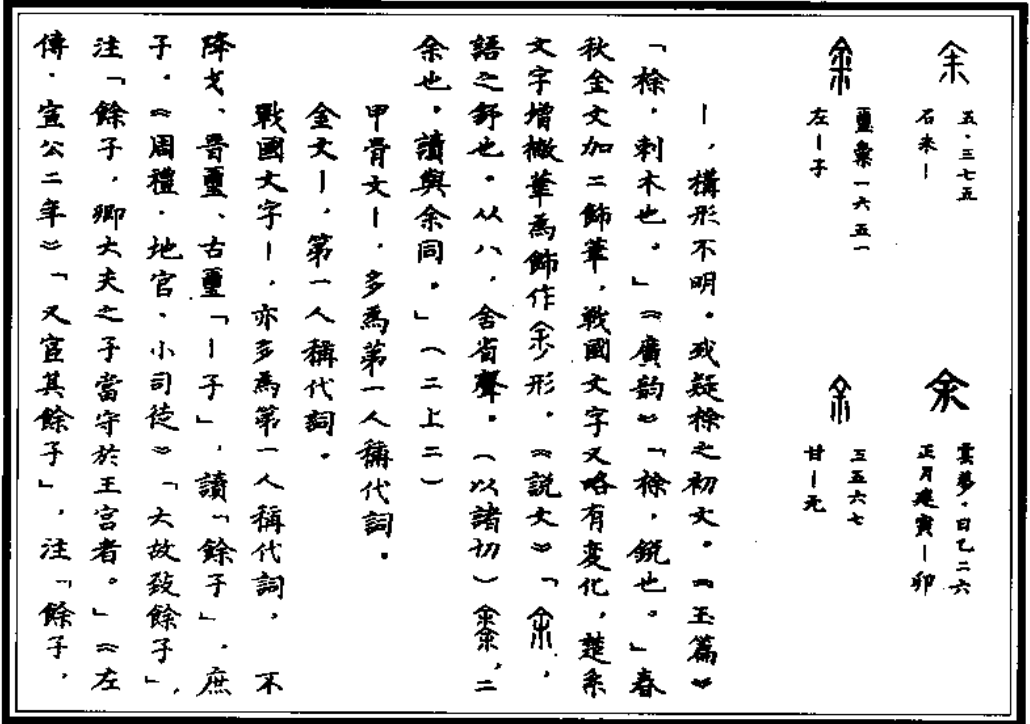 余 五·三七五
石耒丨
余 雲夢·日乙二六
正月建寅丨卯
余 璽彙一六五一
左丨子
余 三五六七
甘丨元
丨，構形不明。或疑㮝之初文。《玉篇》
「㮝，刺木也。」《廣韵》「㮝，銳也。」春
秋金文加二飾筆，戰國文字又略有変化，楚系
文字增撇筆為飾作余形。《說文》「余，
語之舒也。从八，舍省聲。（以諸切）𠎳，二
余也。讀與余同。」（二上二）
甲骨文丨，多為第一人稱代詞。
金文丨，第一人稱代詞。
戰國文字丨，亦多為第一人稱代詞，不
降戈、晉璽、古璽「丨子」，讀「餘子」，庶
子。《周禮·地官·小司徒》「大故致餘子」，
注「餘子，卿大夫之子當守於王宮者。」《左
傳·宣公二年》「又宦其餘子」，注「餘子，